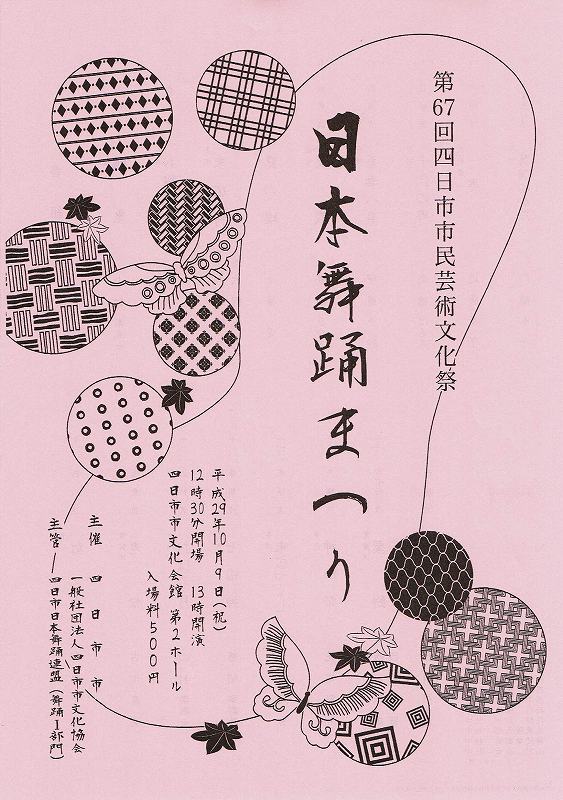 第67回四日市市民芸術文化祭
日本舞踊まつり
平成29年10月9日(祝)
12時30分開場 13時開演
四日市市文化会館 第2ホール
入場料500円
主催 四日市市
一般社団法人四日市市文化協会
主管―四日市日本舞踊連盟(舞踊Ⅰ部門)